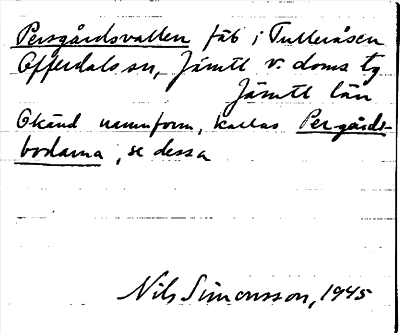 Persgårdsvallen fäb i Tulleråsen
Offerdals sn, Jämtl v. doms tg
Jämtl län
Okänd namnform, kallas Pergårds-
bodarna, se dessa
Nils Simonsson, 1945